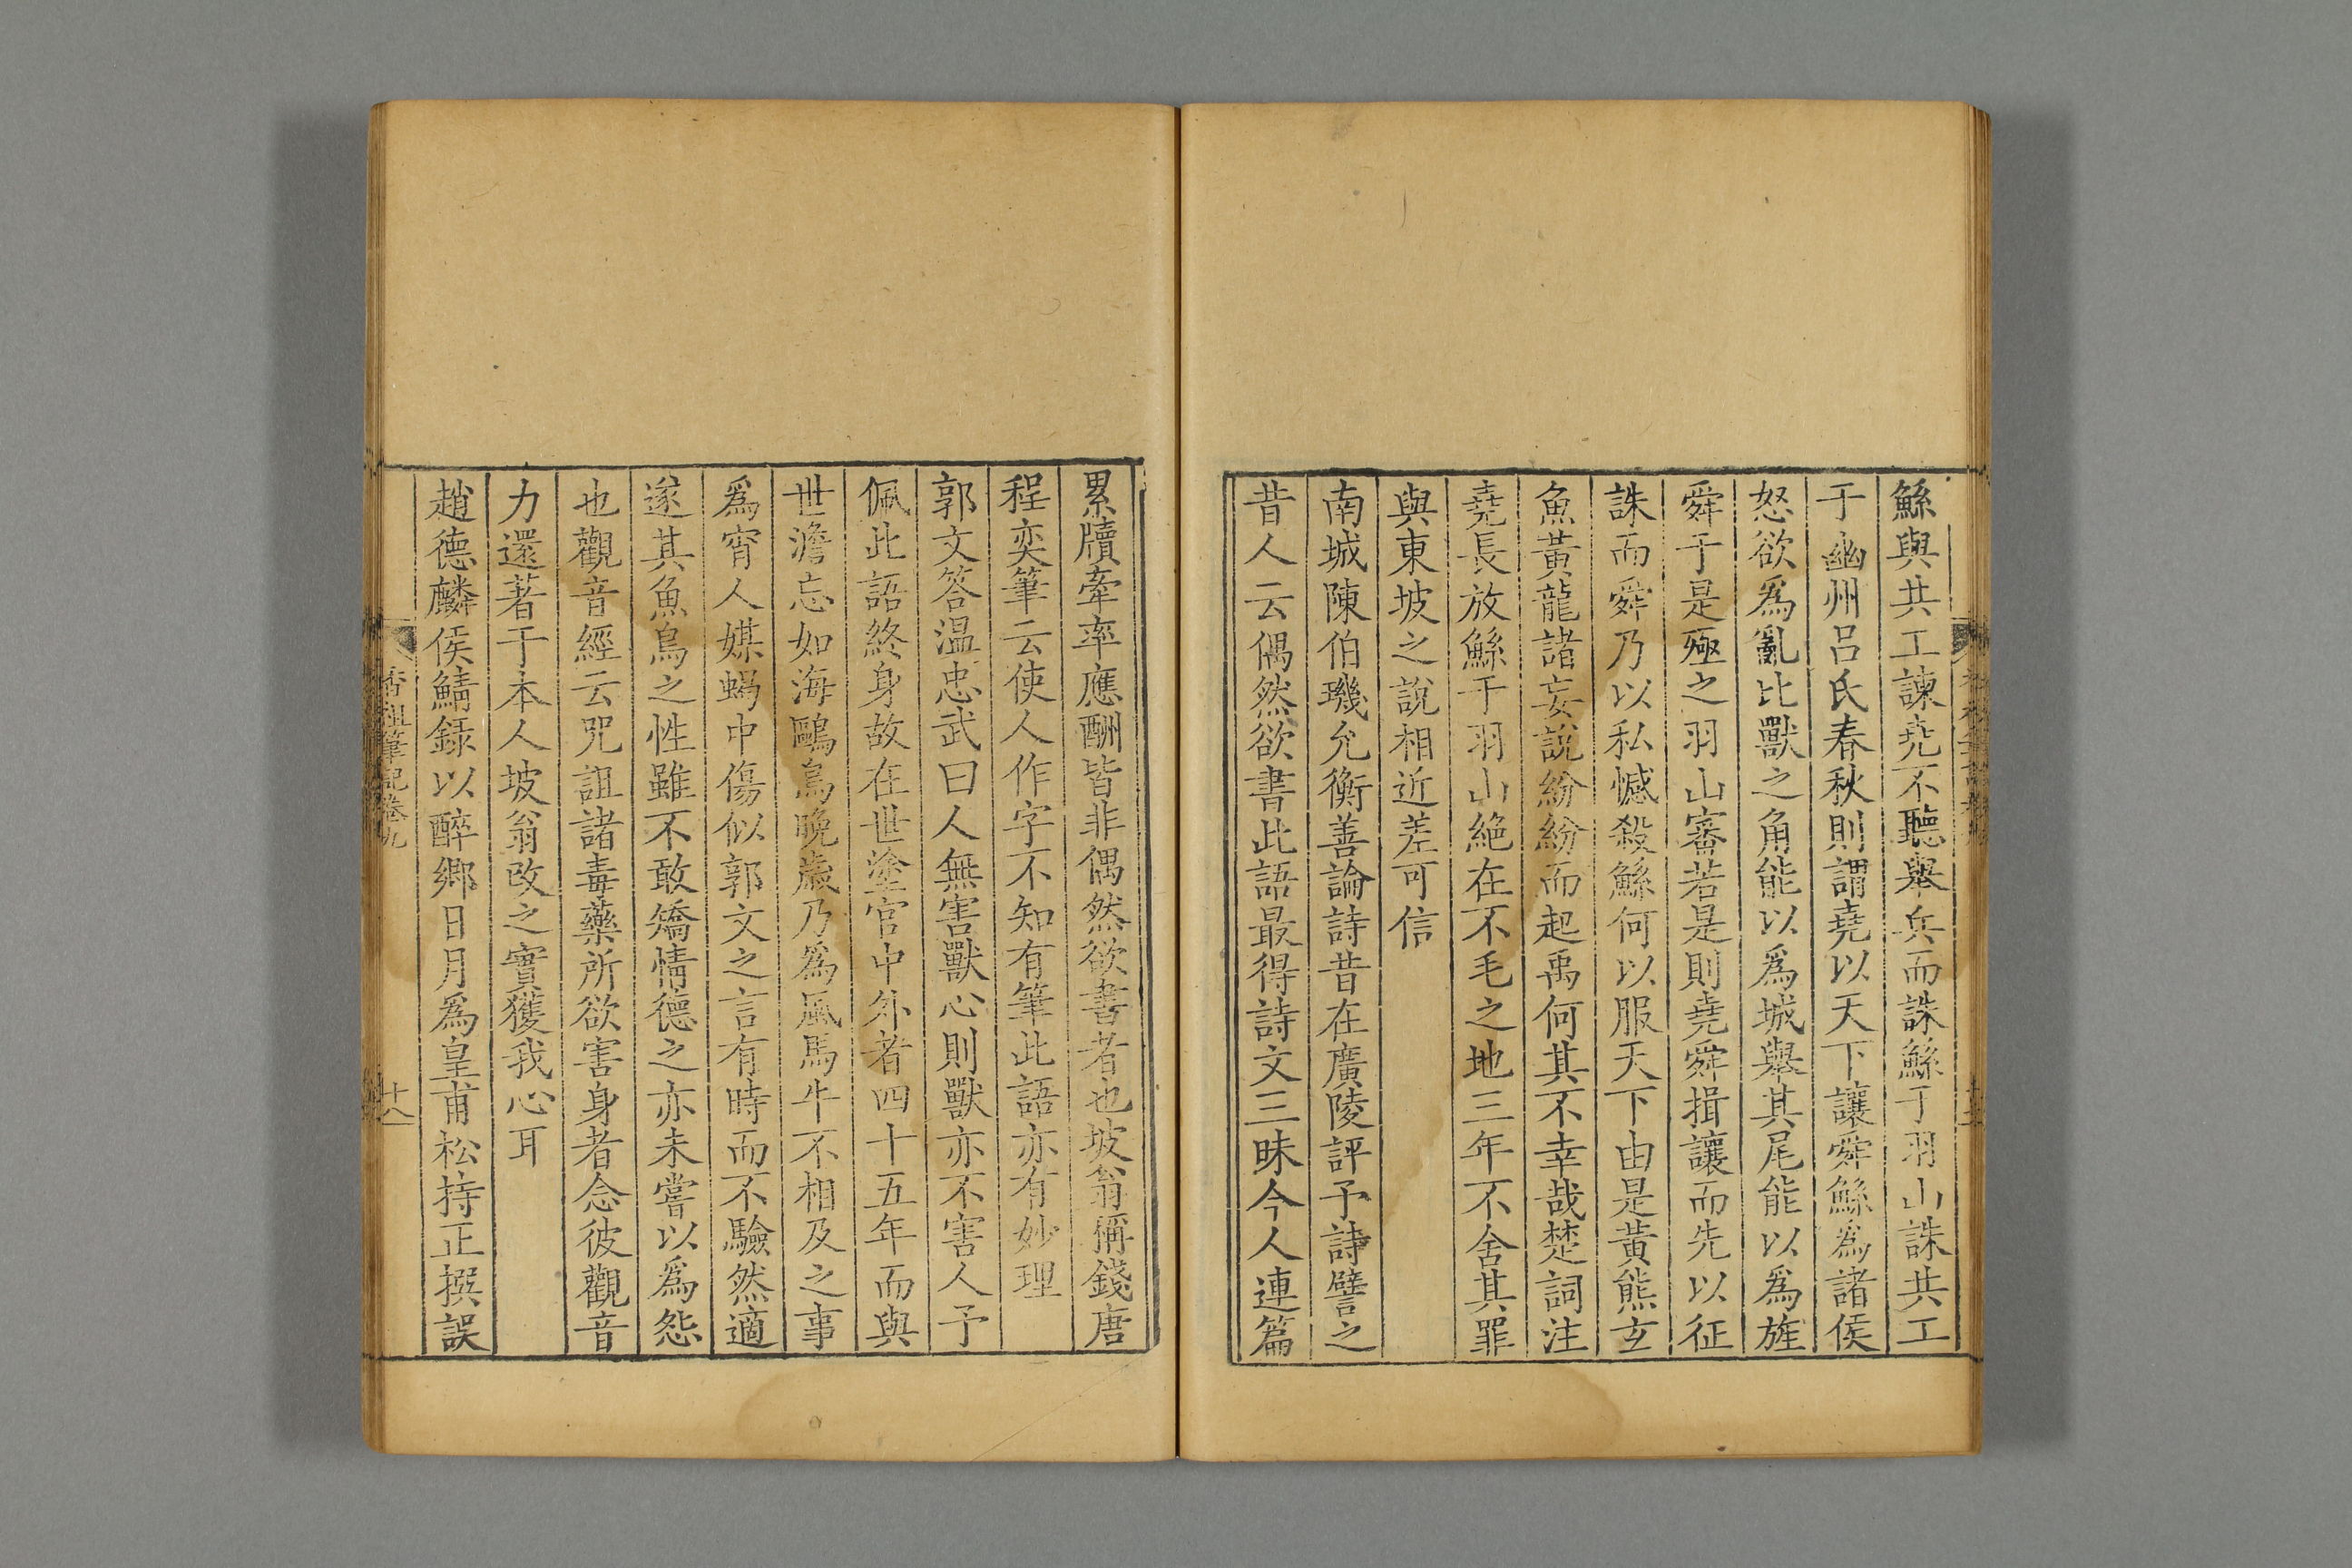 鯀與共工諫尭不聽舉兵而誅鯀于羽山誅共工
于幽州吕氏春秋則謂堯以天下讓舜鯀為諸侯
怒欲爲亂比獸之角能以爲城舉其尾能以爲旌
舜于是殛之羽山審若是則堯舜揖讓而先以征
誅而舜乃以私憾殺鯀何以服天下由是黄熊玄
魚黃龍諸妄說紛紛而起禹何其不幸哉楚詞注
堯長放鯀于羽山絶在不毛之地三年不舍其罪
與東坡之說相近差可信
南城陳伯璣允衡善論詩昔在廣陵評予詩譬之
昔人云偶然欲書此語最得詩文三昧今人連篇
累牘牽率應酬皆非偶然欲書者也坡翁稱錢唐
程奕筆云使人作字不知有筆此語亦有妙理
郭文答温忠武曰人無害獸心則獸亦不害人予
佩此語終身故在世塗官中外者四十五年而與
世澹忘如海鷗鳥晚歲乃爲風馬牛不相及之事
爲宵人媒蝎中傷似郭文之言有時而不驗然適
遂其魚鳥之性雖不敢矯情德之亦未嘗以爲怨
也觀音經云咒詛諸毒藥所欲害身者念彼觀音
力還著于本人坡翁改之實獲我心耳
趙德麟侯鯖録以醉鄉日月爲皇甫松持正撰誤
香祖筆記卷九
十八